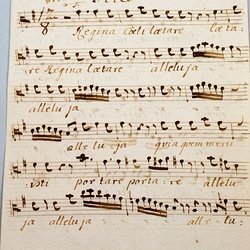 Regina Coeli laetare laeta-
re Regina laetare alleluja
alleluja
alleluja quia quem meru
isti portare portare allelu
ja alleluja allelu-